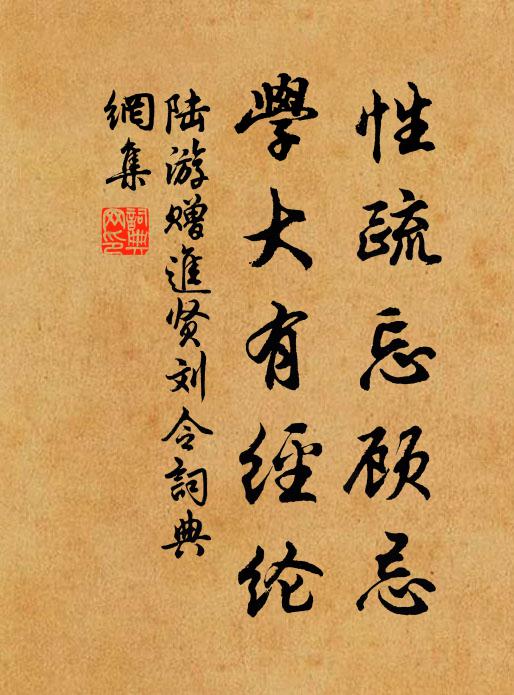 性疏忘顾忌
學大有經纶
陆游赠進贤刘令詞典
網集
詞典
网印